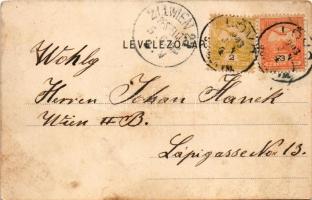 LEVELEZŐLAP
Wohlg
Herren Johan Hanek
Wien II B.
Lápigasse No 13.